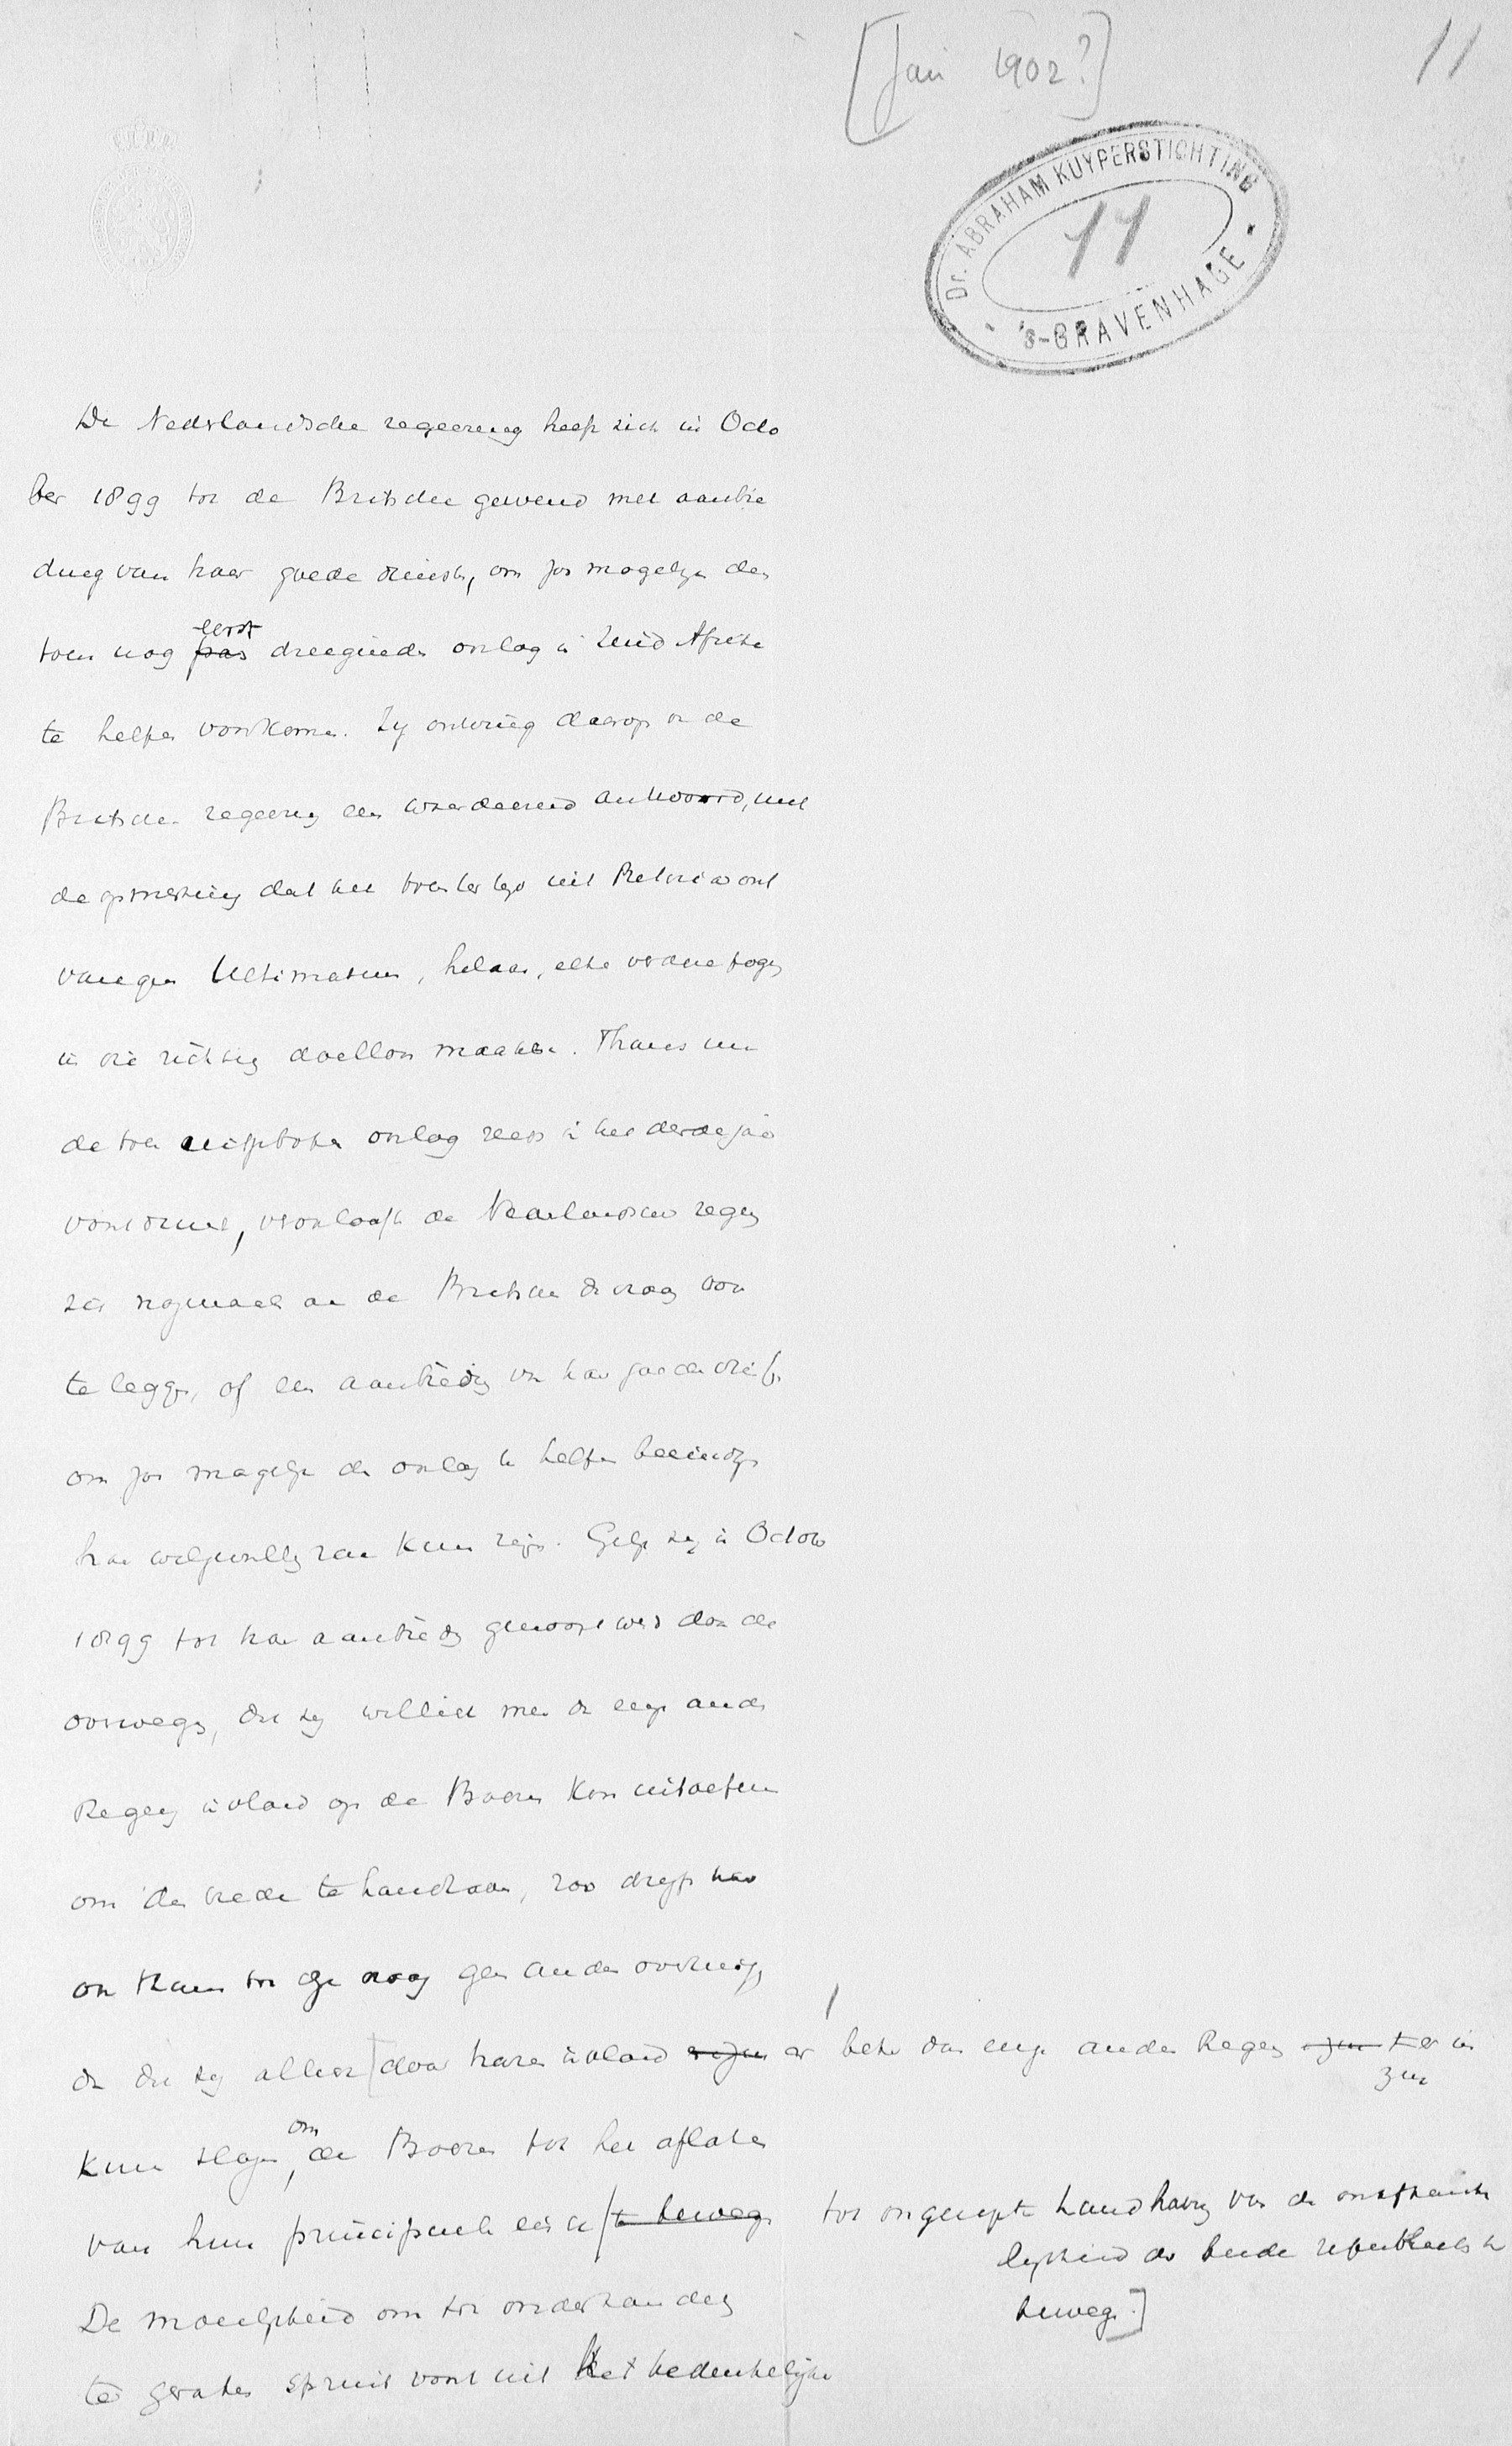 [Jan 1902?]
11
Dr. ABRAHAM KUYPERSTICHTING
11
'S-GRAVENHAGE
De Nederlandsche regeering heeft zich in Octo
ber 1899 tot de Britsche gewend met aanbie
ding van haar goede diensten, om zoo mogelijk den
eerst
toen nog pas dreigenden oorlog in Zuid Afrika
te helpen voorkomen. Zij ontving daarop van de
Britsche regeering een waardeerend antwoord, met
de opmerking dat het toen ter tijd uit Pretoria ont
vangen Ultimatum, helaas, elke verdere poging
in die richting doelloos maakte. Thans nu
de toen uitgebroken oorlog reeds in het derde jaar
voortduurt, veroorlooft de Nederlandsche regeering
zich nogmaals aan de Britsche de vraag voor
te leggen, of een aanbieding van haar goede diensten
om zoo mogelijk den oorlog te helpen beeindigen
haar welgevallig zou kunnen zijn. Gelijk zij in October
1899 tot haar aanbieding genoopt werd door de
overweging, dat zij wellicht meer dan eenige andere
Regeering invloed op de Boeren kon uitoefenen
om den vrede te handhaven, zoo drijft haar
ook thans tot deze vraag geen andere overtuiging
dan dat zij allicht door haren invloed er beter dan eenige andere Regeering er in
zou
om
kunnen slagen, de Boeren tot het aflaten
van hun principieele eisch te bewegen tot ongerepte handhaving van de onafhanke
lijkheid der beide republieken te
bewegen.]
De moeilijkheid om tot onderhandeling
te geraken spruit voort uit het bedenkelijke